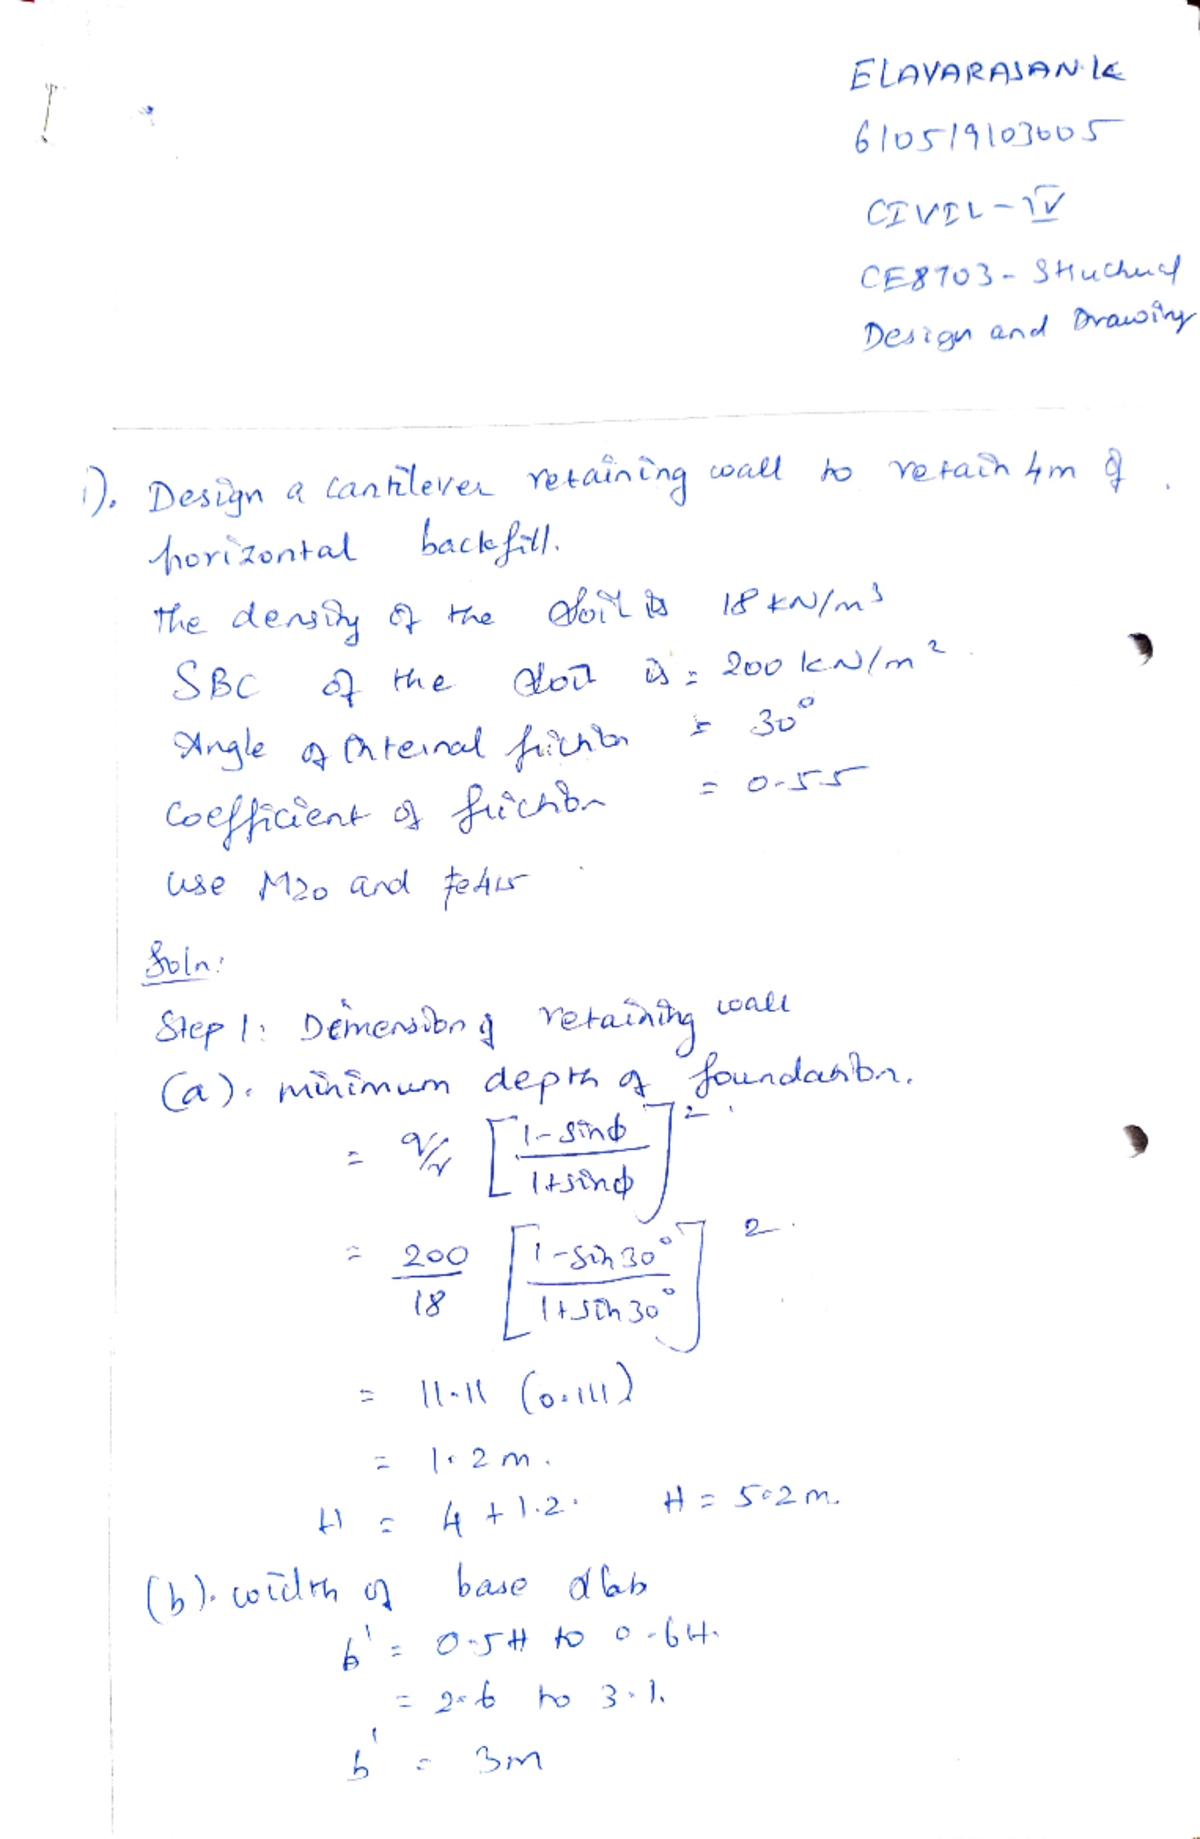 ELAVARASAN.K
610519103005
CIVIL - IV
CE8703 - Structural
Design and Drawing
1). Design a cantilever retaining wall to retain 4m of
horizontal backfill.
The density of the soil is 18 kN/m³
SBC of the soil is = 200 kN/m².
Angle of internal friction = 30°
Coefficient of friction = 0.55
use M20 and Fe415
Soln:
Step 1: Dimension of retaining wall
(a). minimum depth of foundation.
= q/γ [1-sinϕ / 1+sinϕ]².
= 200/18 [1-sin30° / 1+sin30°]².
= 11.11 (0.111)
= 1.2 m.
H = 4 + 1.2. H = 5.2 m.
(b). width of base slab
b' = 0.5H to 0.6H.
= 2.6 to 3.1.
b' = 3m